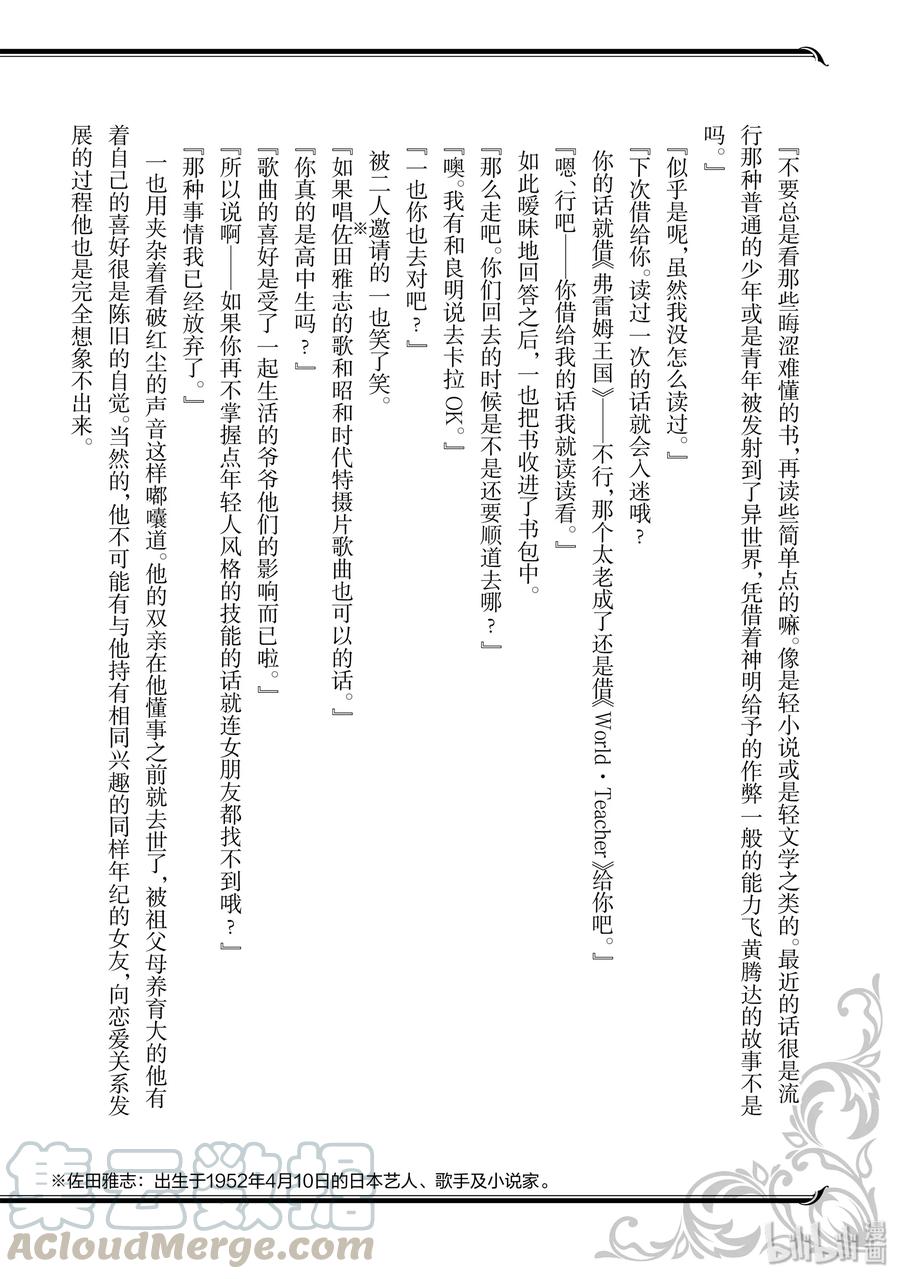 『不要总是看那些晦涩难懂的书，再读些简单点的嘛。像是轻小说或是轻文学之类的。最近的话很是流
行那种普通的少年或是青年被发射到了异世界，凭借着神明给予的作弊一般的能力飞黄腾达的故事不是
吗。』
『似乎是呢，虽然我没怎么读过。』
『下次借给你。读过一次的话就会入迷哦？
你的话就借《弗雷姆王国》——不行，那个太老成了还是借《World・Teacher》给你吧。』
『嗯、行吧——你借给我的话我就读读看。』
如此暧昧地回答之后，一也把书收进了书包中。
『那么走吧。你们回去的时候是不是还要顺道去哪？』
『噢。我有和良明说去卡拉OK。』
『一也你也去对吧？』
被二人邀请的一也笑了笑。
『如果唱※佐田雅志的歌和昭和时代特摄片歌曲也可以的话。』
『你真的是高中生吗？』
『歌曲的喜好是受了一起生活的爷爷他们的影响而已啦。』
『所以说啊——如果你再不掌握点年轻人风格的技能的话就连女朋友都找不到哦？』
『那种事情我已经放弃了。』
一也用夹杂着看破红尘的声音这样嘟囔道。他的双亲在他懂事之前就去世了，被祖父母养育大的他有
着自己的喜好很是陈旧的自觉。当然的，他不可能有与他持有相同兴趣的同样年纪的女友，向恋爱关系发
展的过程他也是完全想象不出来。
※佐田雅志：出生于1952年4月10日的日本艺人、歌手及小说家。
集云数据
AcloudMerge.com
bilibili漫画